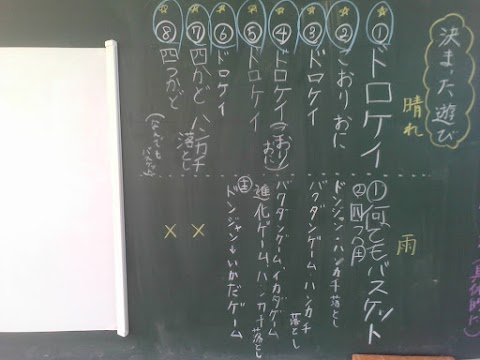 決まった遊び
晴れ
①ドロケイ
②こおりおに
③ドロケイ
④ドロケイ(こおりおに)
⑤ドロケイ
⑥ドロケイ
⑦四かど ハンカチ落とし
⑧四つかど(なんでもバスケット)
雨
①何でもバスケット
②四つ角
ドンジャン・ハンカチ落とし
バクダンゲーム ハンカチ落とし
バクダンゲーム、イカダゲーム
進化ゲーム、ハンカチ落とし
ドンジャン・いかだゲーム
×
×